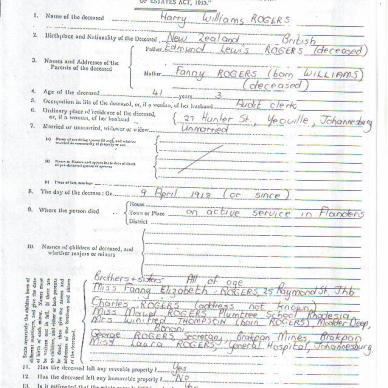 OF ESTATES ACT, 1913."
1. Name of the deceased Harry Williams ROGERS
2. Birthplace and Nationality of the Deceased New Zealand British
3. Names and Addresses of the Parents of the deceased Father Edmund Lewis ROGERS (deceased)
Mother Fanny ROGERS (born WILLIAMS)
(deceased)
4. Age of the deceased 41 years 3
5. Occupation in life of the deceased, or, if a woman, of her husband Audit clerk
6. Ordinary place of residence of the deceased, or, if a woman, of her husband 27 Hunter St, Yeoville, Johannesburg
7. Married or unmarried, widower or widow Unmarried
8. The day of the decease: On 9 April 1918 (or since)
9. Where the person died House
Town or Place on active service in Flanders
District
10. Names of children of deceased, and whether majors or minors
Brothers + sisters All of age
Miss Fanny Elizabeth ROGERS, 25 Raymond St. Jhb
Charles ROGERS (address not known)
Miss Maud ROGERS Plumtree School Rhodesia
Winifred THOMPSON (born ROGERS) Modder Deep,
Benoni
George ROGERS Secretary, Brakpan Mines, Brakpan
Miss Laura ROGERS, General Hospital, Johannesburg
11. Has the deceased left any movable property? Yes
12. Has the deceased left any immovable property? No
13. Is it estimated that the estate